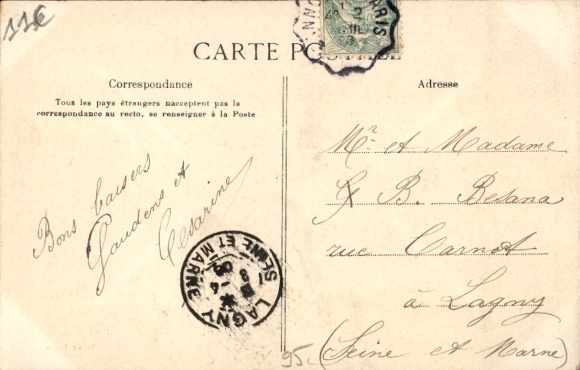 11€
PARIS
CARTE POSTALE
Correspondance
Adresse
Tous les pays étrangers nacceptent pas la
correspondance au recto, se renseigner à la Poste
Bons baisers
Gaudens et
Césarine
Mr et Madame
B. Besana
rue Carnot
à Lagny
(Seine et Marne)
LAGNY
SEINE ET MARNE
95.